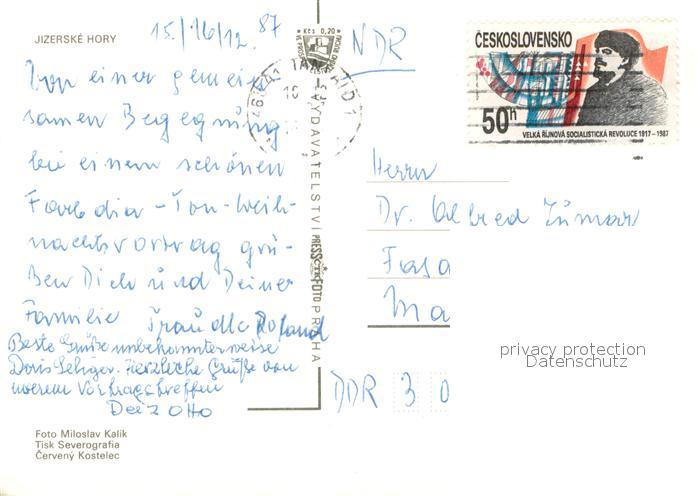 JIZERSKÉ HORY
15./16/12. 87
Von einer gemein-
samen Begegnung
bei einem schönen
Farbdia-Ton-Weih-
nachtsvortrag grü-
ßen Dich und Deiner
Familie Traudl Roland
Beste Grüße unbekannterweise
Doris Seliger. Herzliche Grüße von
unserem Vortragstreffen
Dein Otto
Foto Miloslav Kalík
Tisk Severografia
Červený Kostelec
Kčs 0,20
VYDAVATELSTVÍ PRESSFOTO PRAHA
NDR
ČESKOSLOVENSKO
50h
VELKÁ ŘÍJNOVÁ SOCIALISTICKÁ REVOLUCE 1917–1987
TANVALD 1
468 41
Herrn
Dr. Alfred
Fasa
Ma
DDR 30
privacy protection
Datenschutz